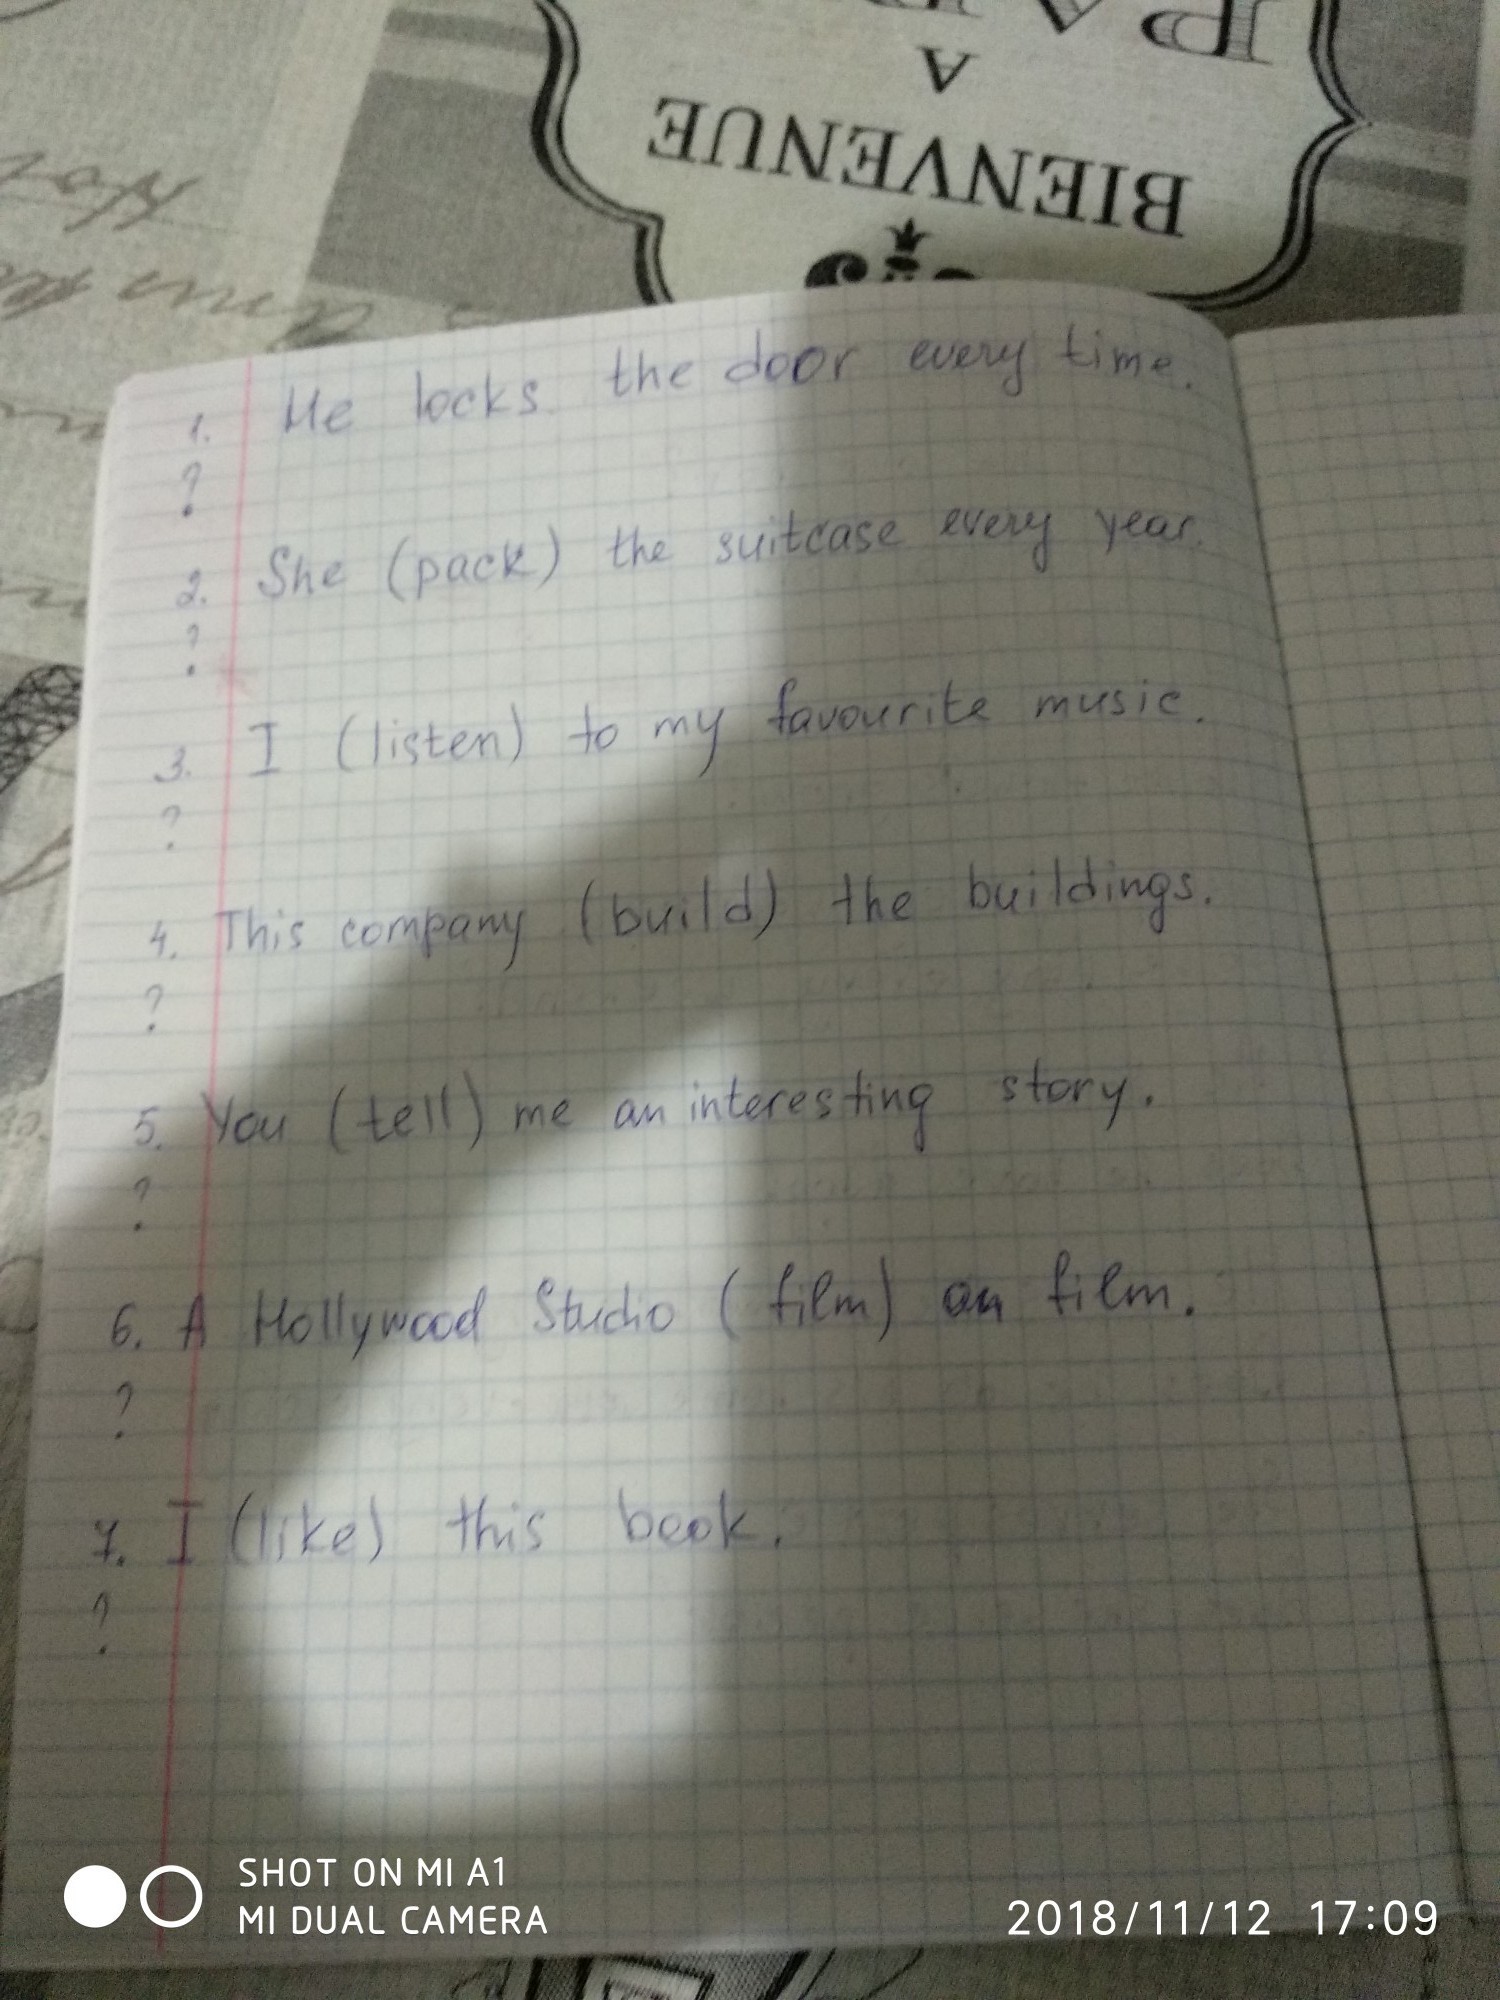 PA
A
BIENVENUE
1. He locks the door every time.
?
2. She (pack) the suitcase every year.
?
3. I (listen) to my favourite music.
?
4. This company (build) the buildings.
?
5. You (tell) me an interesting story.
?
6. A Hollywood Studio (film) an film.
?
7. I (like) this book.
?
SHOT ON MI A1
MI DUAL CAMERA
2018/11/12 17:09